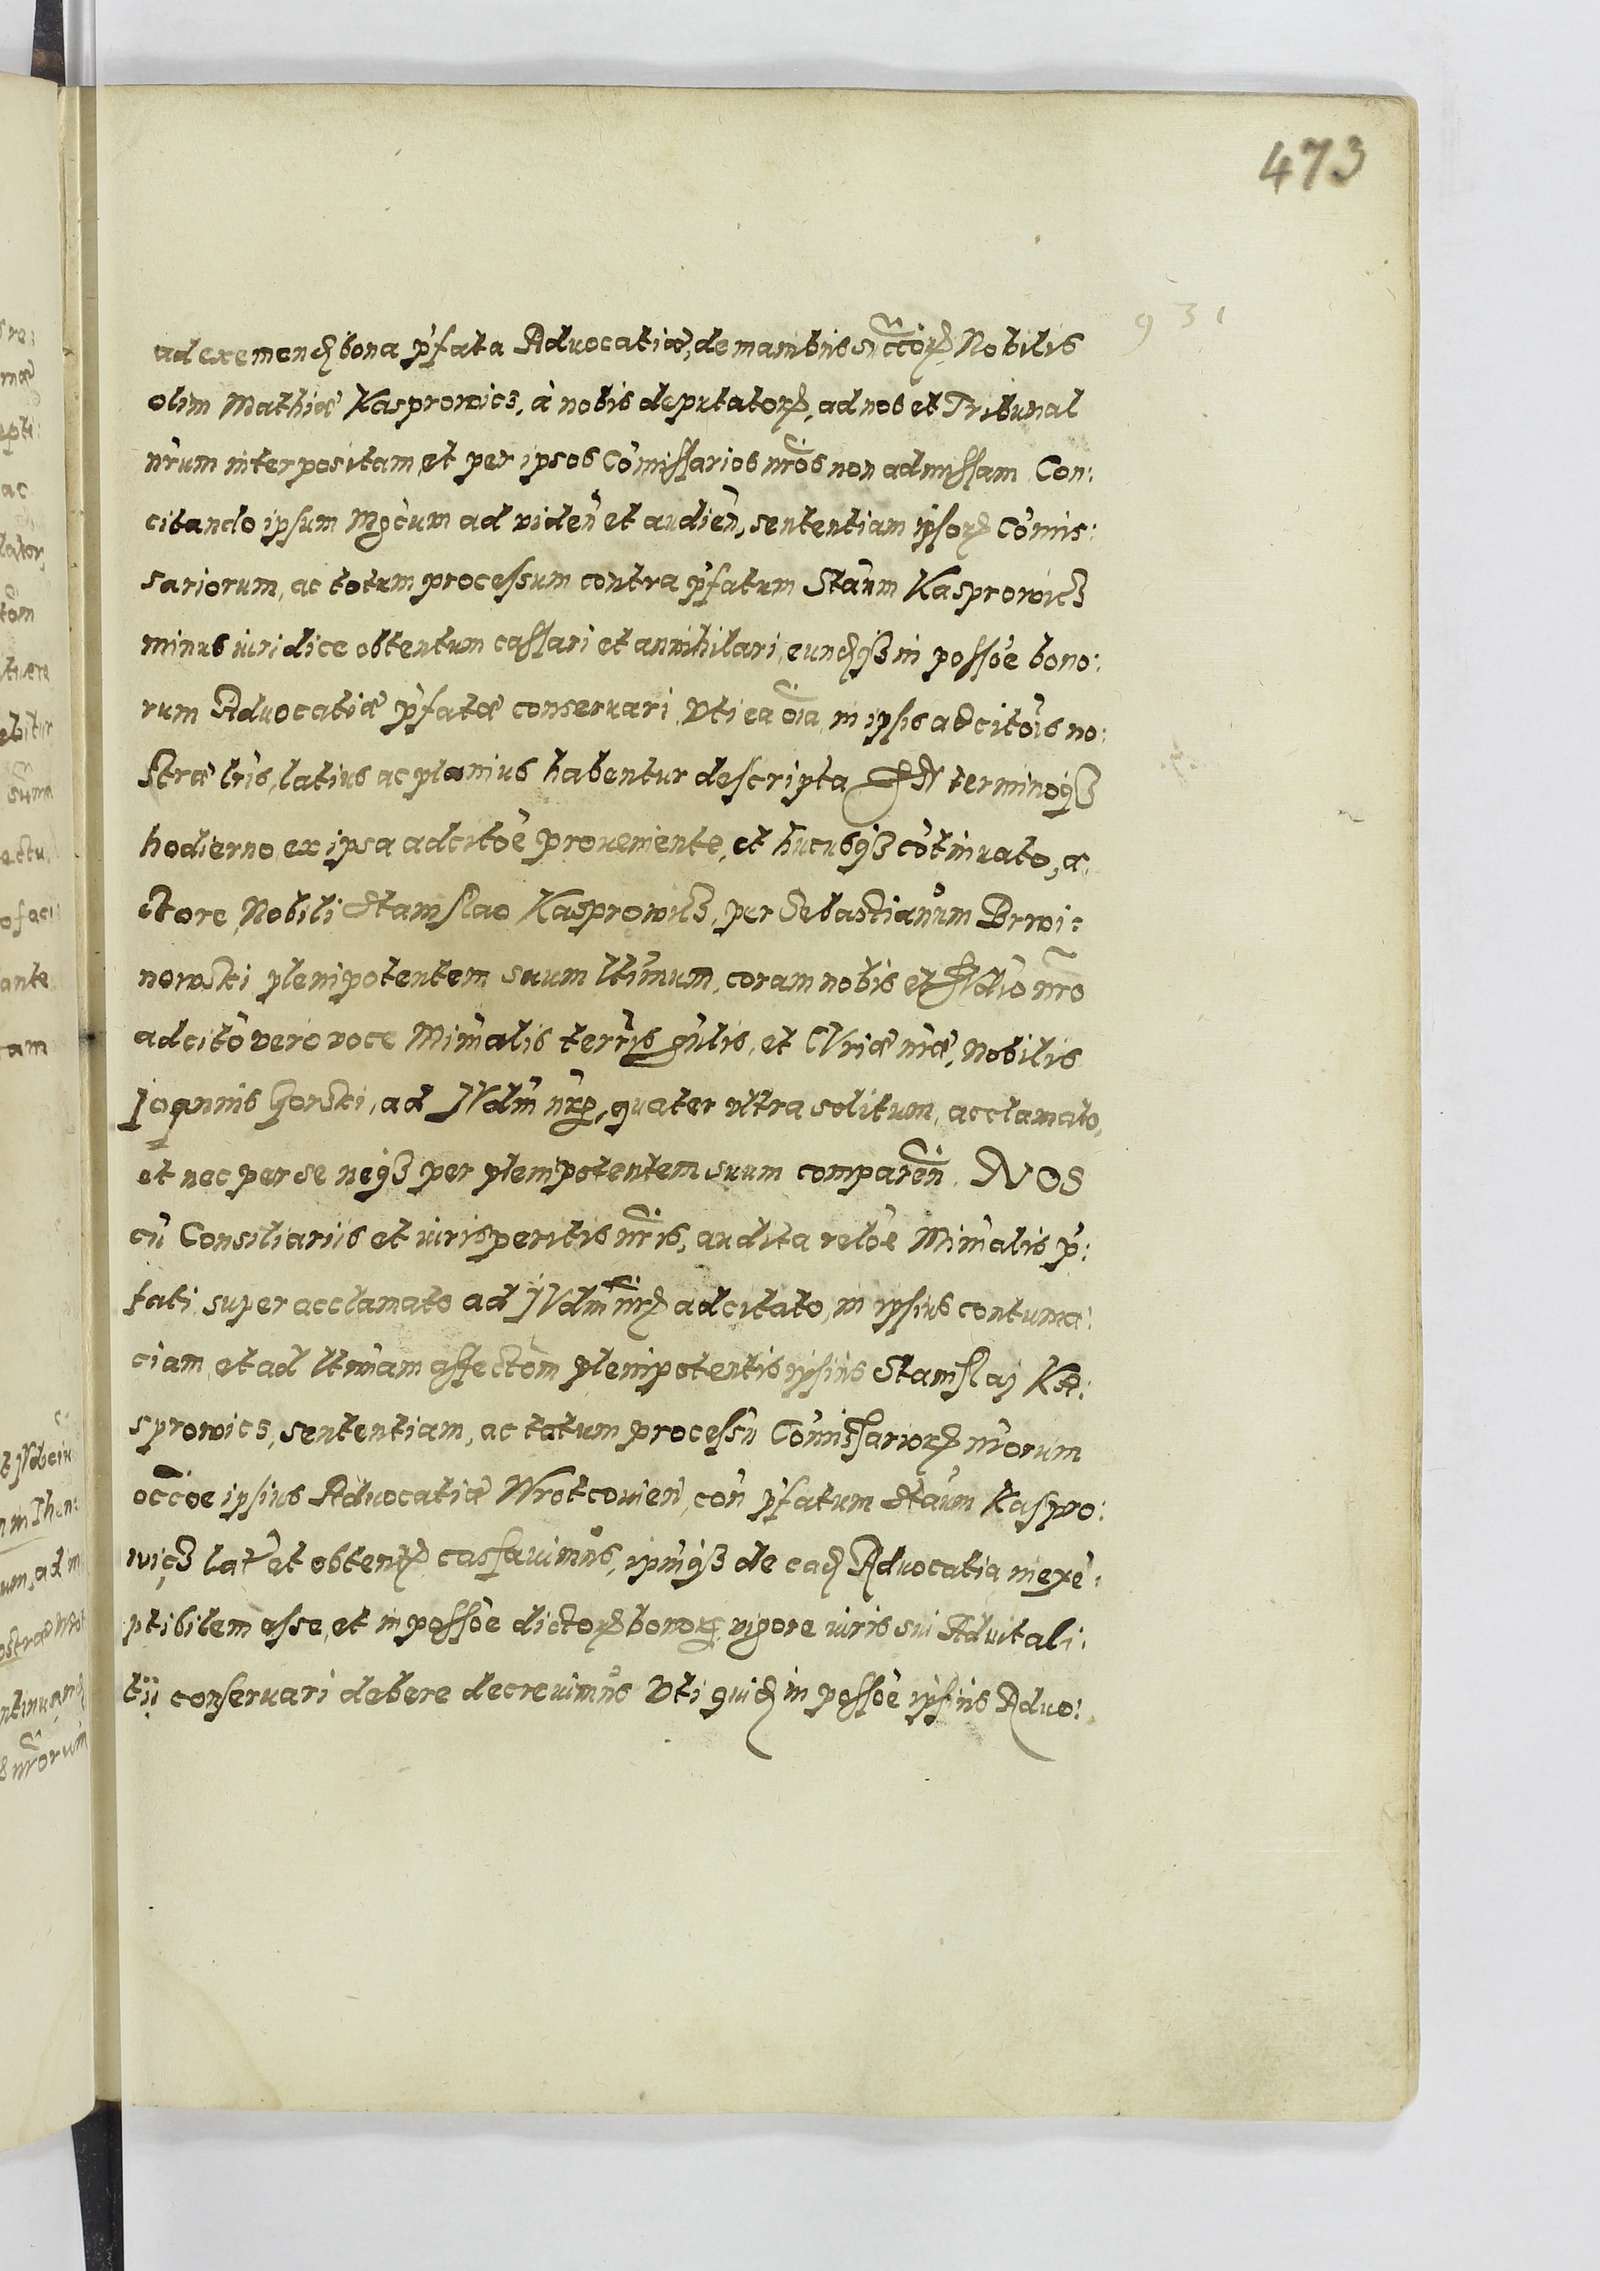 473
931
ad exemend bona p̃fata Advocatiæ, de manibus succ̃orꝝ Nobilis
olim Mathiæ Kasprowicz, à nobis deputatorꝝ, ad nos et Tribunal
nr̃um interpositam et per ipsos Co͂missarios nr̃os non admissam Con:
citando ipsum Mgc̃um ad viden̄ et audien̄, sententiam ipsorꝝ Co͂mis:
sariorum, ac totum processum contra p̃fatum Sta͂um Kasprowicz
minus iuridice obtentum cassari et annihilari, eundqꝫ in possõe bono:
rum Advocatiæ p̃fatæ conservari Vti ea õia in ipsis adcitõis no:
stræ lr̃is, latius ac planius habentur descripta IN terminoqꝫ
hodierno ex ipsa adcitõe proueniente, et hucusqꝫ cõtinuato, a:
ctore Nobili Stanislao Kasprowicz, per Sebastianum Brwi:
nowski plenipotentem suum lt̃imum, coram nobis et Iudĩo nr̃o
adcitõ vero voce Min̄alis terr̃is gñlis, et CVriæ nr̃æ, Nobilis
Joannis Gorski, ad IVdm̃ nr̃ꝝ, quater vltra solitum, acclamato,
et nec per se neqꝫ per plenipotentem suum comparen̄. NOS
cũ Consiliariis et iurisperitis nr̃is, audita relõe Min̄alis p̃:
fati super acclamato ad IVdm̃ nr̃ꝝ adcitato, in ipsius contuma:
ciam, et ad lt̃imam affectõm plenipotentis ipsius Stanislaj Ka:
sprowicz, sententiam, ac totum processũ Co͂missariorꝝ nr̃orum
occõe ipsius Advocatiæ Wrotcouien̄, con̄ p̃fatum Sta͂um Kaspro:
wicz lat̃ et obtenꝝ cassauimus, ipm̃qꝫ de ead Advocatia inexẽ:
ptibilem esse, et in possõe dictorꝝ bonorꝝ, vigore iuris sui Aduitali:
tii conseruari debere decreuimus Vti quid in possõe ipsius Aduo: